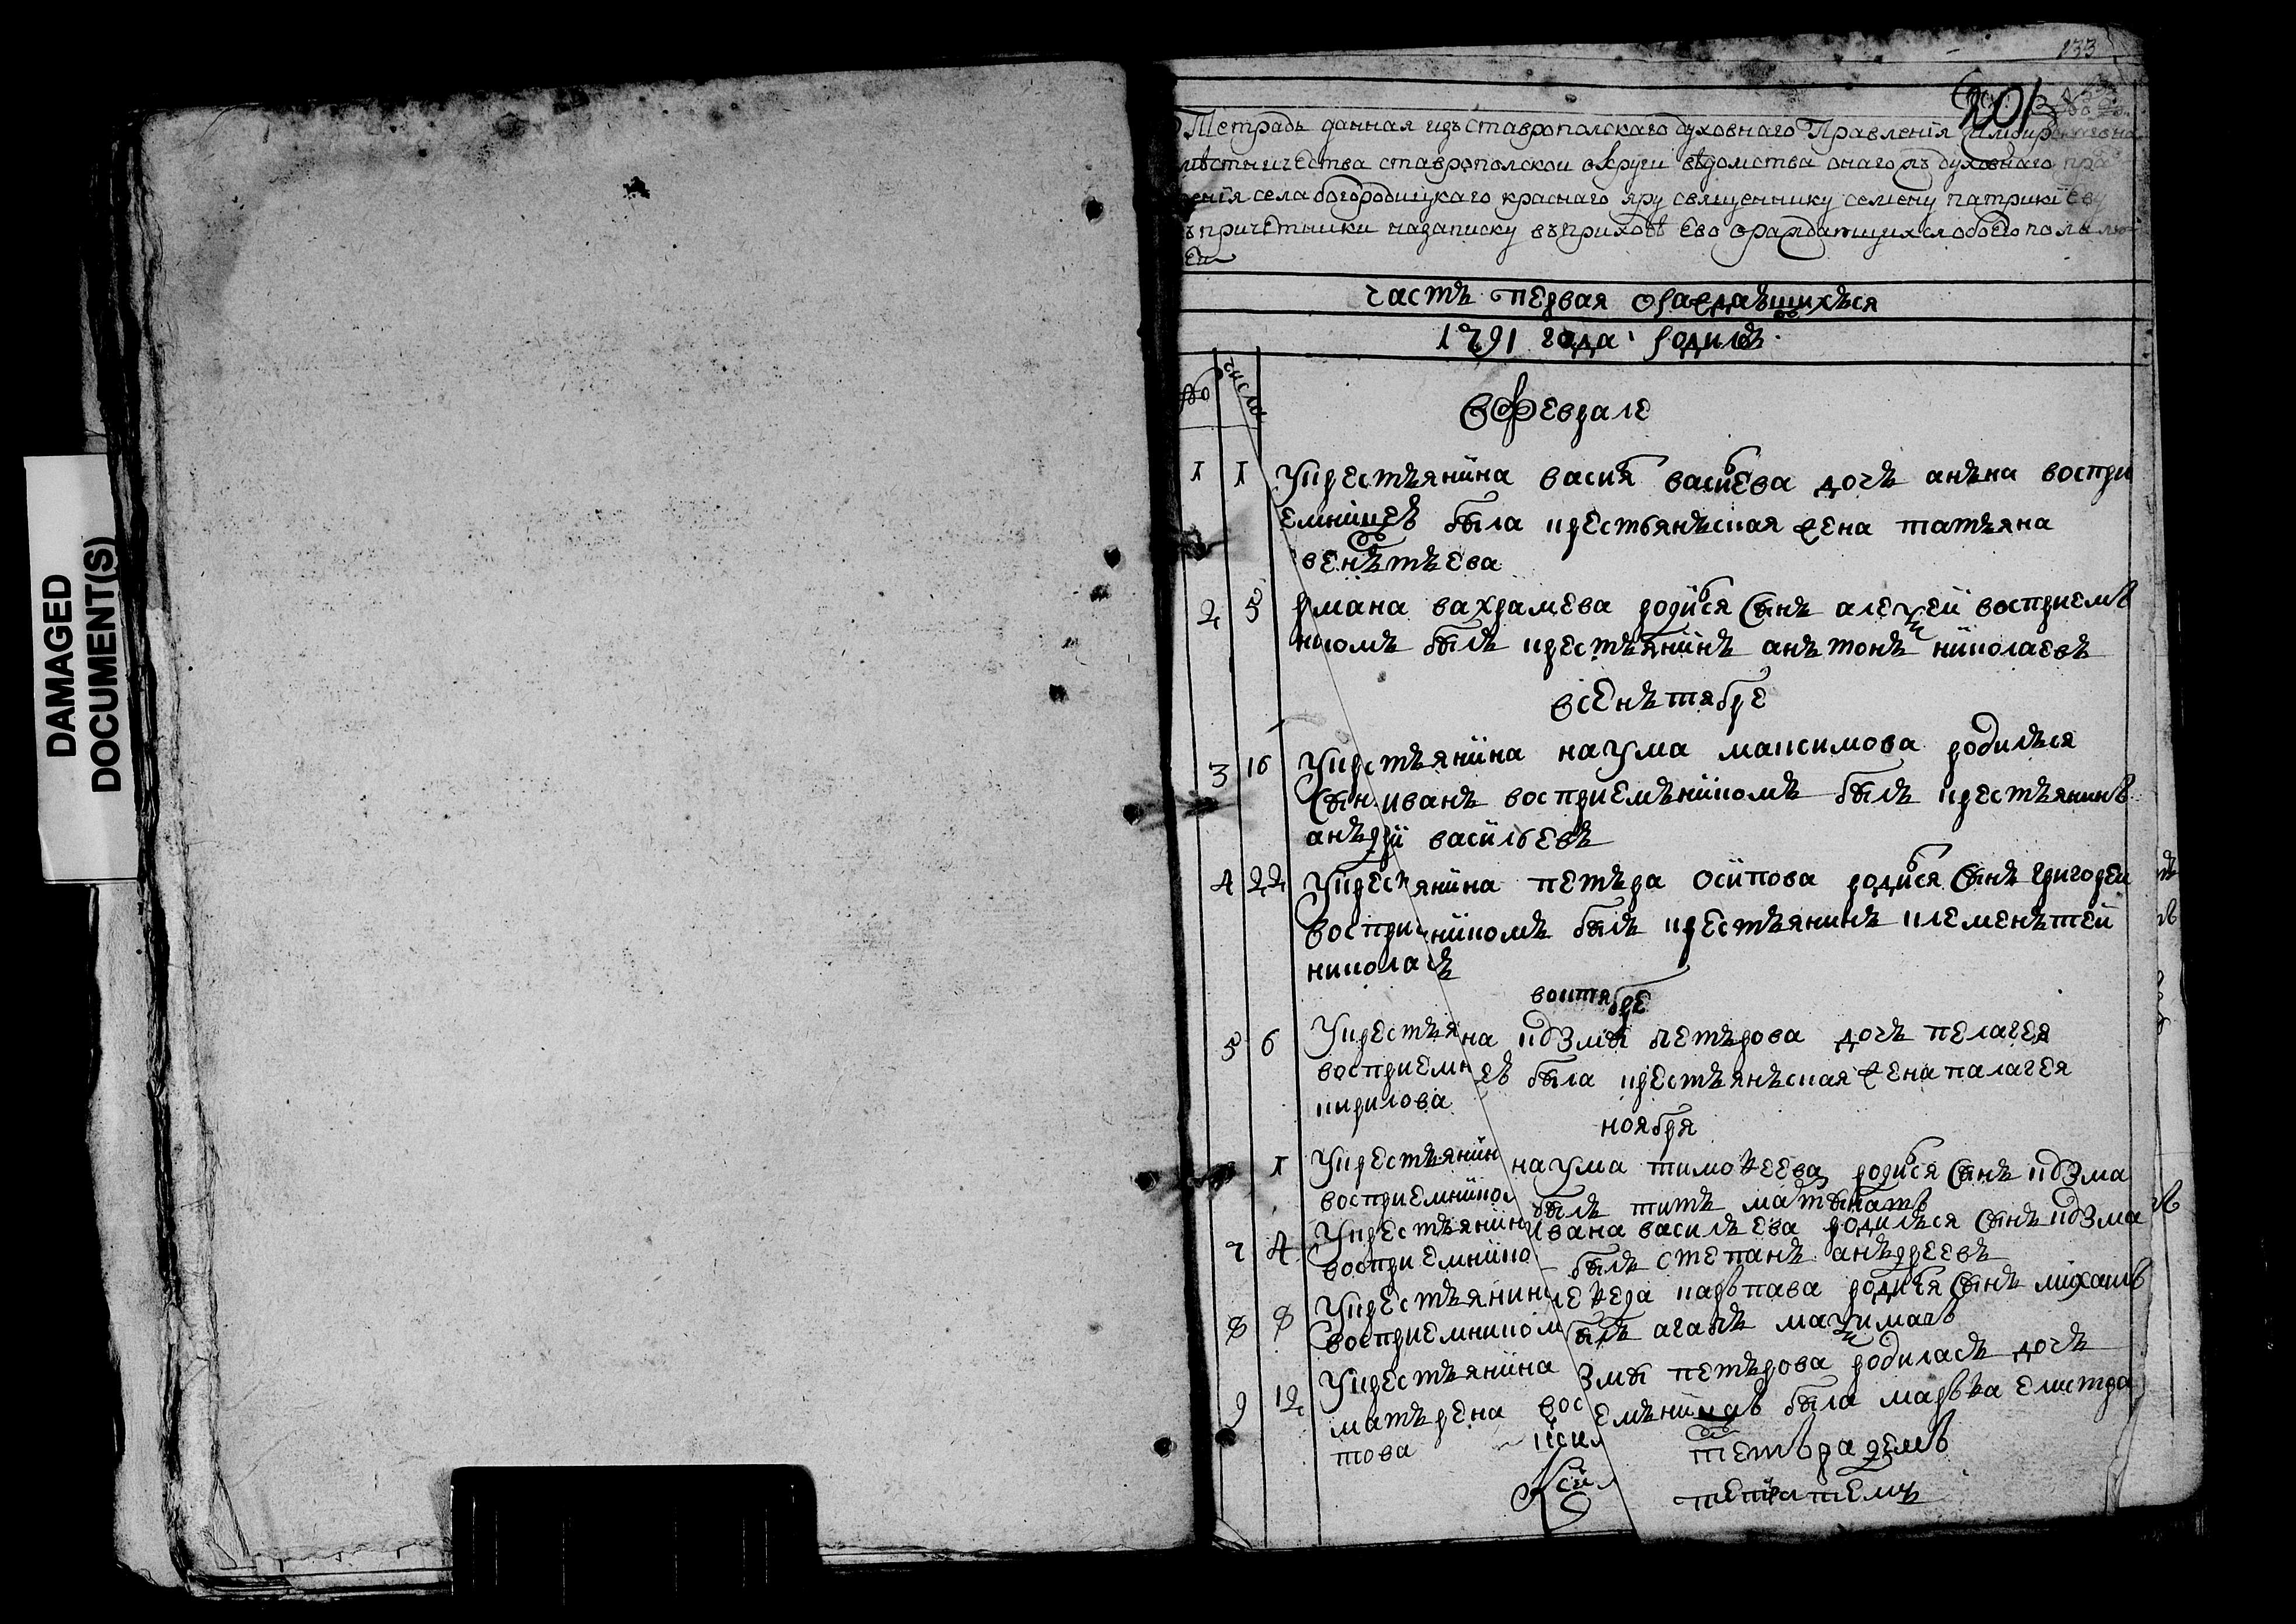 DAMAGED
DOCUMENT(S)
133
201
Тетрадь данная изъ ставрополскаго духовнаго Правленiя
ставрополской округи вѣдомства онагожъ духовнаго
села богородицкаго краснаго яру священнику семену патрикiеву
причетники на записку въ приходѣ ево
частъ первая ораждаъшихъся
1791 года родилъ
число
вфеврале
1 1 укрестъянина василя васильева дочъ анъна воспри
емницеѣ была крестьянъская жена татъяна
2 5 рмана вахрамева родился сынъ алеѯей восприемъ
никомъ былъ крестъянинъ анътонъ николаевъ
всенътябре
3 16 укрстъянина наума максимова родилъся
сын иванъ восприемъникомъ былъ крестъянинъ
анъдрй васильевъ
4 22 укрестянина петъра осипова родился сынъ григореи
воспри никомъ былъ крестъянинъ клеменътей
никола въ
воктябре
5 6 укрестъя на кузмы петърова дочъ пелагея
восприемн еѣ была крестъянъская жена палагея
кирилова
ноября
1 укрестъянин наума тимоѳеева родился сынъ кузма
восприемником былъ титъ
7 4 укрестъянин ивана василъева родилъся сынъ кузма
восприемнико былъ степанъ анъдреевъ
8 8 укрестъянин ѳедра карпава родился сынъ михаилъ
восприемником былъ агапъ маѯимачъ
9 12 укрестъянина змы петърова родиласъ дочъ
матърена вос емъницеѣ была маръѳа елистра
това